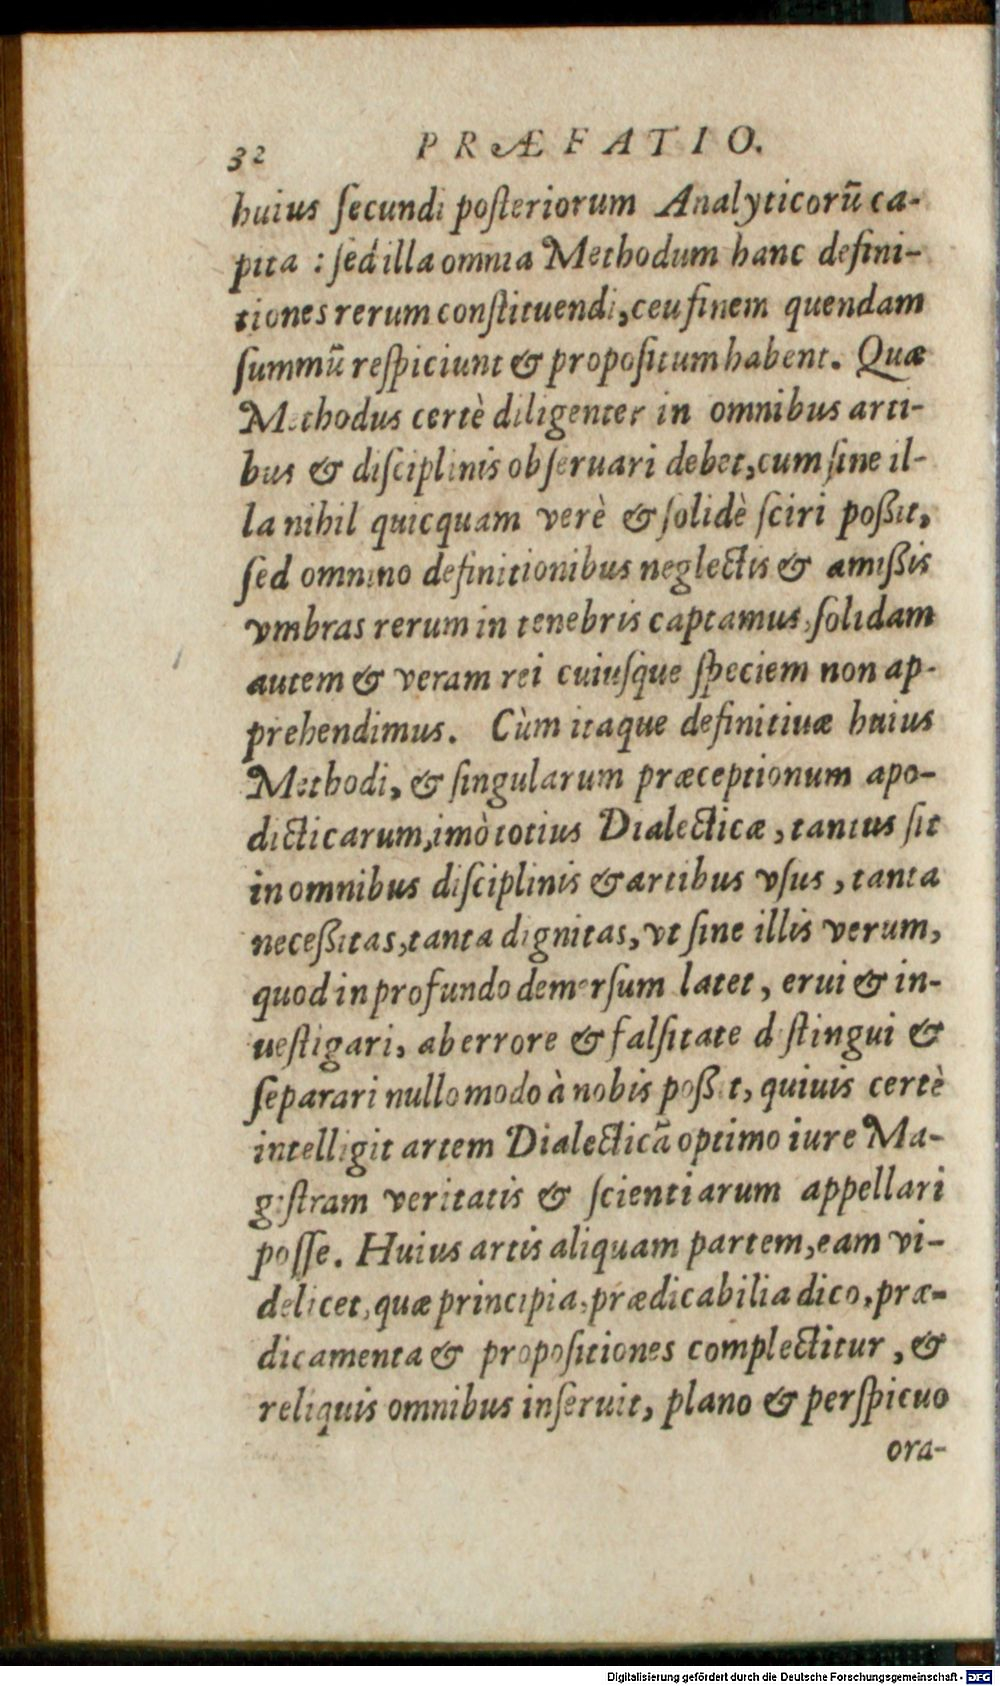 32 PRÆFATIO.
huius ſecundi poſteriorum Analyticorũ ca-
pita : ſed illa omnia Methodum hanc defini-
tiones rerum conſtituendi, ceu finem quendam
ſummũ reſpiciunt & propoſitum habent. Quæ
Methodus certè diligenter in omnibus arti-
bus & diſciplinis obſeruari debet, cum ſine il-
la nihil quicquam verè & ſolidè ſciri poßit,
ſed omnino definitionibus neglectis & amißis
vmbras rerum in tenebris captamus, ſolidam
autem & veram rei cuiuſque ſpeciem non ap-
prehendimus. Cùm itaque definitiuæ huius
Methodi, & ſingularum præceptionum apo-
dicticarum, imò totius Dialecticæ, tantus ſit
in omnibus diſciplinis & artibus vſus, tanta
neceßitas, tanta dignitas, vt ſine illis verum,
quod in profundo demerſum latet, erui & in-
ueſtigari, ab errore & falſitate diſtingui &
ſeparari nullo modo à nobis poßit, quiuis certè
intelligit artem Dialecticã optimo iure Ma-
giſtram veritatis & ſcientiarum appellari
poſſe. Huius artis aliquam partem, eam vi-
delicet, quæ principia, prædicabilia dico, præ-
dicamenta & propoſitiones complectitur, &
reliquis omnibus inſeruit, plano & perſpicuo
ora-
Digitalisierung gefördert durch die Deutsche Forschungsgemeinschaft - DFG